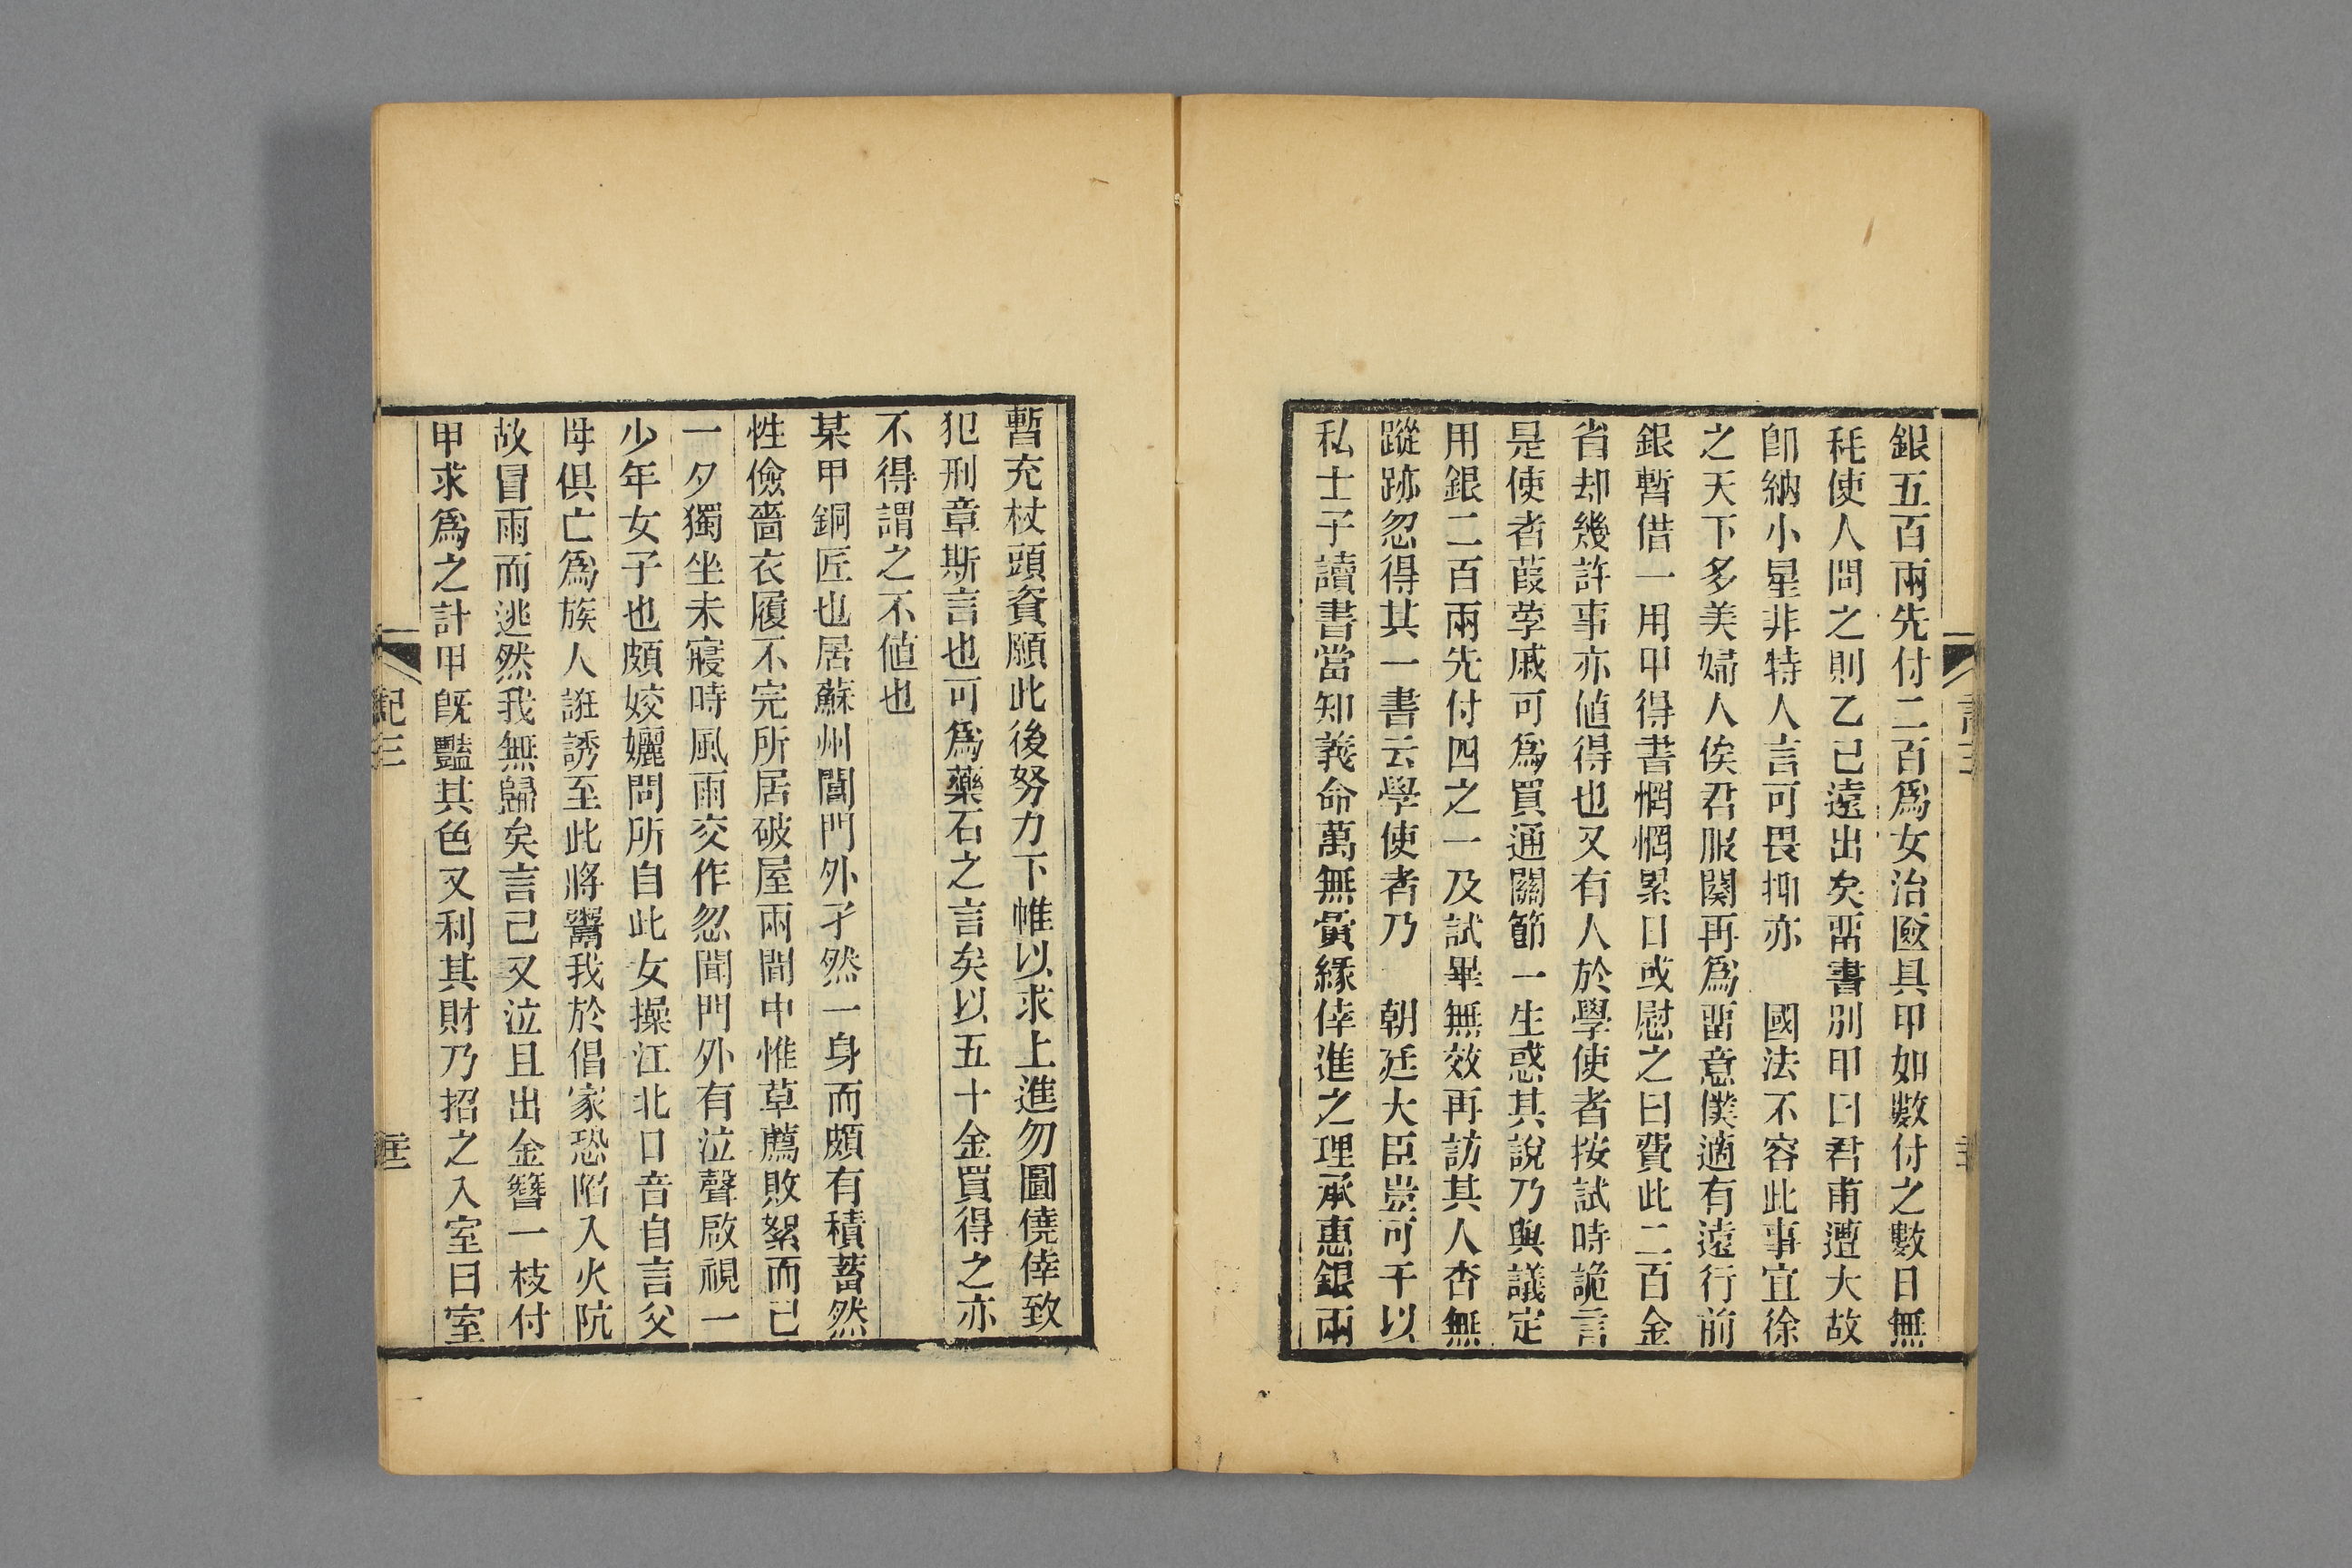 銀五百兩先付二百爲女治匳具甲如數付之數日無
耗使人問之則乙已遠出矣畱書別甲曰君甫遭大故
卽納小星非特人言可畏抑亦　國法不容此事宜徐
之天下多美婦人俟君服闋再爲畱意僕適有遠行前
銀暫借一用甲得書惘惘累日或慰之曰費此二百金
省却幾許事亦値得也又有人於學使者按試時詭言
是使者葭莩戚可爲買通關節一生惑其說乃與議定
用銀二百兩先付四之一及試畢無效再訪其人杳無
蹤跡忽得其一書云學使者乃　朝廷大臣豈可干以
私士子讀書當知義命萬無夤緣倖進之理承惠銀兩
暫充杖頭資願此後努力下帷以求上進勿圖僥倖致
犯刑章斯言也可爲藥石之言矣以五十金買得之亦
不得謂之不値也
某甲銅匠也居蘇州閶門門外孑然一身而頗有積蓄然
性儉嗇衣履不完所居破屋兩間中惟草薦敗絮而已
一夕獨坐未寢時風雨交作忽聞門外有泣聲啟視一
少年女子也頗姣孋問所自此女操江北口音自言父
母俱亡爲族人誑誘至此將鬻我於倡家恐陷入火阬
故冒雨而逃然我無歸矣言已又泣且出金簪一枝付
甲求爲之計甲旣豔其色又利其財乃招之入室曰室
紀三